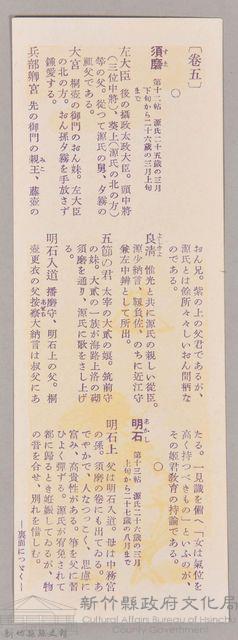 〔卷五〕
○
須磨 第十二帖 源氏二十五歳の三月
下旬から二十六歳の三月上旬
まで
左大臣 後の攝政太政大臣。頭中將
(三位中將)、葵上(源氏の北の方)
等の父。從つて源氏の舅、夕霧の
祖父である。
大宮 桐壺の御門のおん妹。左大臣
の北の方。おん孫夕霧を手放さず
鍾愛する。
兵部卿宮 先の御門の親王、藤壺の
おん兄。紫の上の父君であるが、
源氏とは餘所々々しいおん間柄な
のである。
良清 惟光と共に源氏の親しい從臣。
源少納言、靱負佐、のちに近江守
兼左中辨として所出。
五節の君 太宰の大貳の娘。筑前守
の妹。大貳の一族が海路上洛の砌
須磨を通り、源氏に歌をさし上げ
る。
明石入道 播磨守。明石上の父。桐
壺更衣の父按察大納言は叔父にあ
たる。一見識を備へ「女は氣位を
高く持つべきもの」といふのが、
その姬君教育の持論である。
○
明石 第十三帖 源氏二十六歳の三月
上旬から二十七歳の八月まで
明石上 父は明石入道、母は中務宮
の孫。須磨の卷にも出てゐる。あ
でやかで、人なつこく、思慮に
富み、高貴性がある。箏を父に習
ひよく彈ずる。源氏が宥免されて
都に歸るとき妊娠してゐるが、物
の音を合せ、別れを惜しむ。
―裏面につゞく―
新竹縣政府文化局
Cultural Affairs Bureau of Hsinchu
County Government